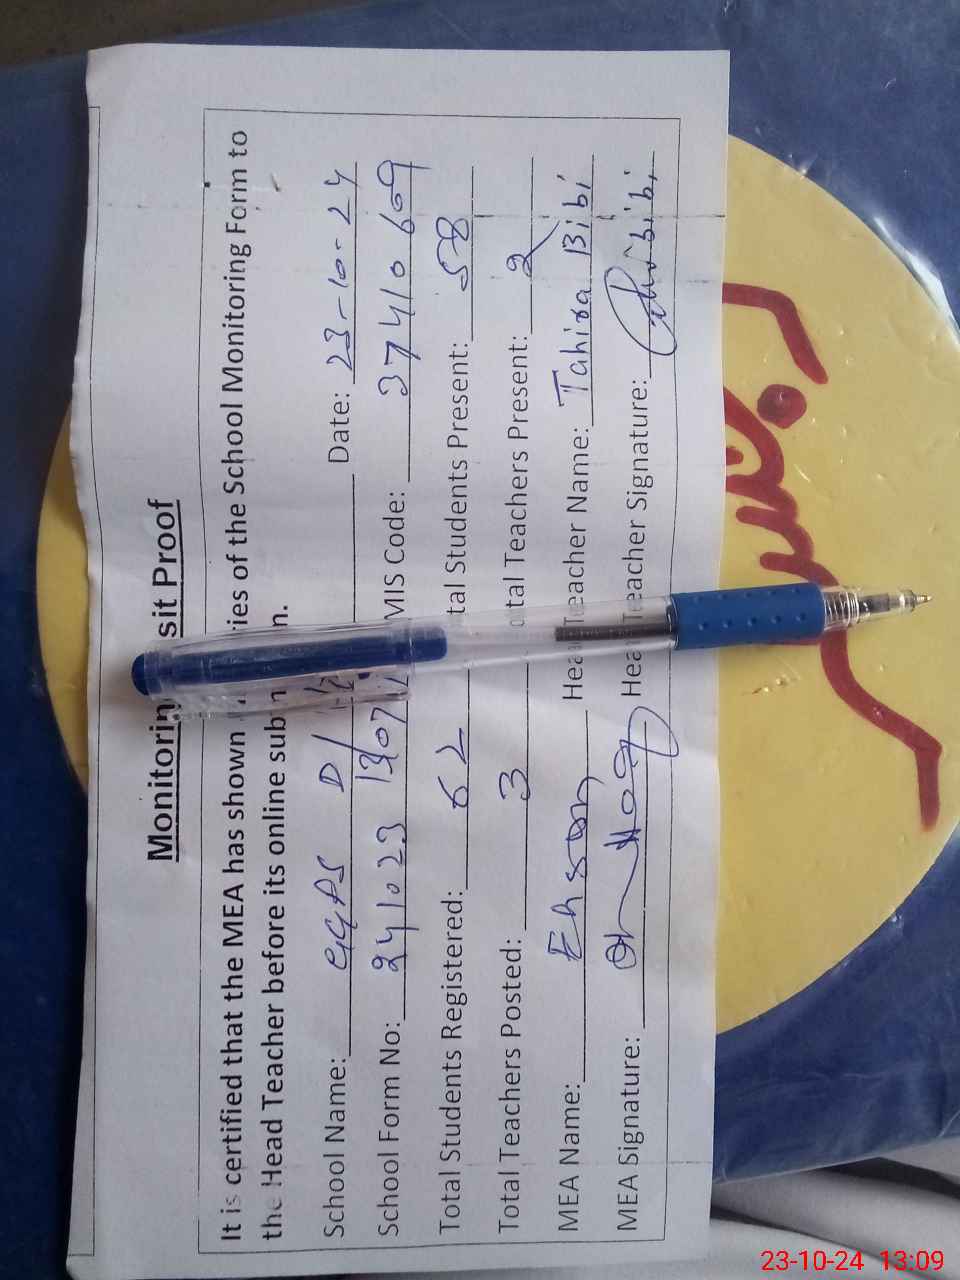 Monitorin sit Proof
It is certified that the MEA has shown ries of the School Monitoring Form to
the Head Teacher before its online subm n.
School Name: GGPS D Date: 23-10-24
School Form No: 241023 1307 MIS Code: 37410609
Total Students Registered: 62 tal Students Present: 58
Total Teachers Posted: 3 tal Teachers Present: 2
MEA Name: Ehsan Head Teacher Name: Tahira Bibi
MEA Signature: Head Teacher Signature:
23-10-24 13:09